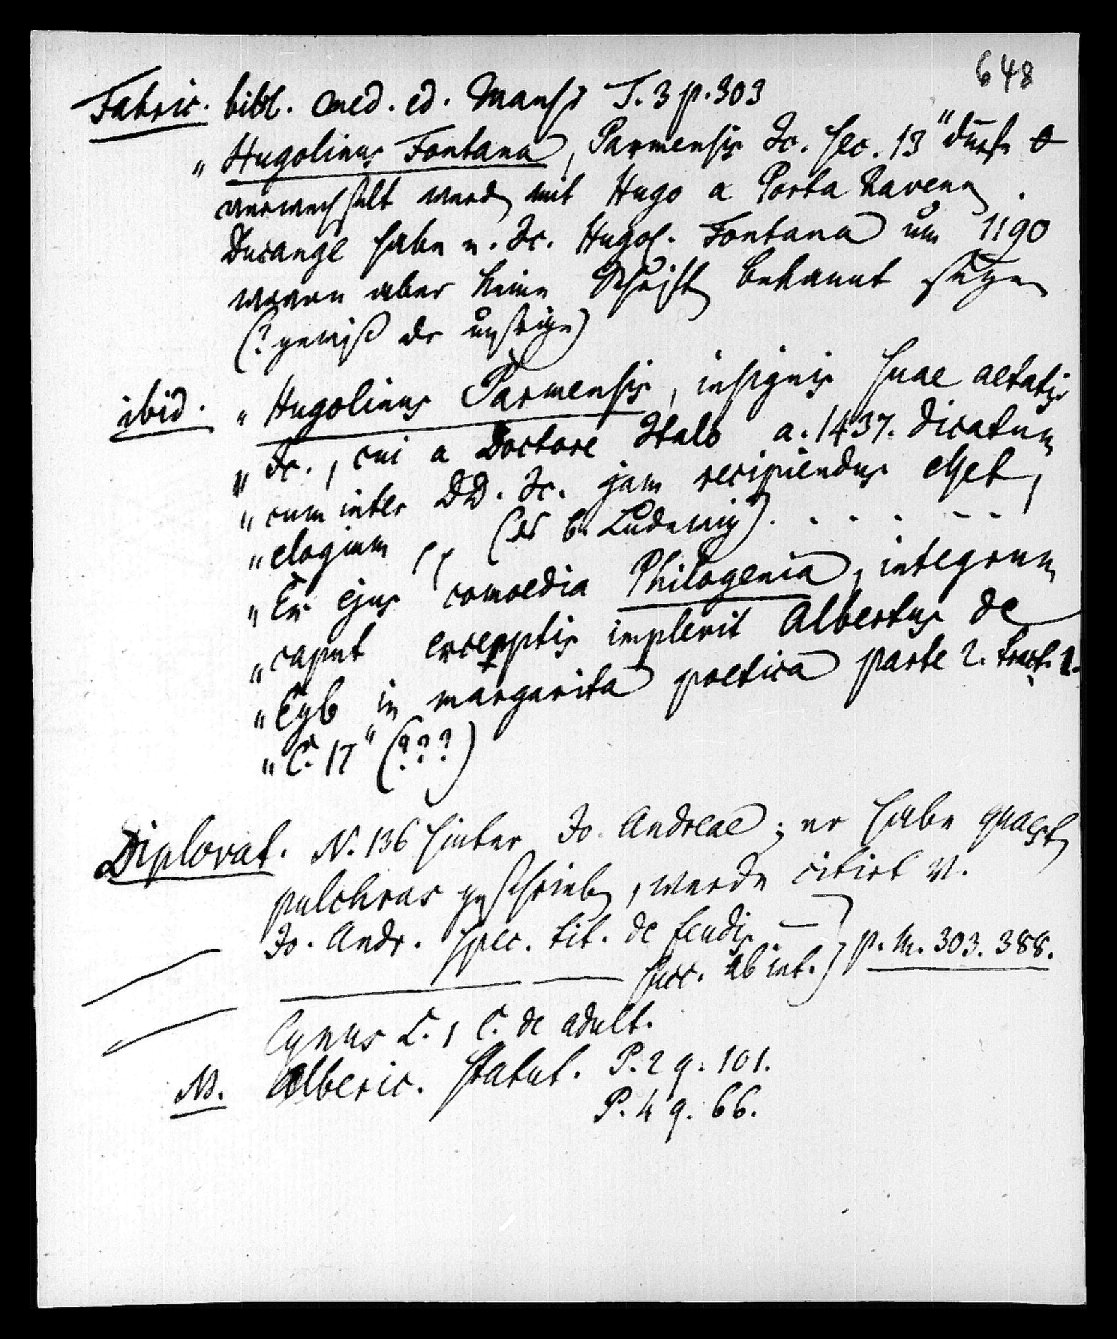 648
Fabric. bibl. med. ed. Mansi T. 3 p. 303
„Hugolinus Fontana, Parmensis Jc. sec. 13" dürfe
verwechselt werden mit Hugo a Porta Ravenn.
Ducange habe e. Jc. Hugol. Fontana um 1190
wovon aber keine Schriften bekannt seyen
(? gewiß der unsrige)
ibid. „Hugolinus Parmensis, insignis suae aetatis
„Jc., cui a Doctore Italo a. 1437. dicatum
„cum inter DD. Jc. jam recipiendus esset,
„elogium (Ludewig). . . . - - -
„Ex ejus comoedia Philogenia, integrum
„caput excerptis implevit Albertus de
„Eyb in margarita poetica parte 2. tract. 1.
„C. 17" (???)
Diplovat. N. 136 hinter Jo. Andreae; er habe quaest
pulchras geschrieben, werde citirt v.
Jo. Andr. spec. tit. de feudis — } p. m. 303. 388.
succ. ab int. }
Cynus L. 1 C. de adult.
NB. Alberic. statut. P. 2 q. 101.
P. 4 q. 66.